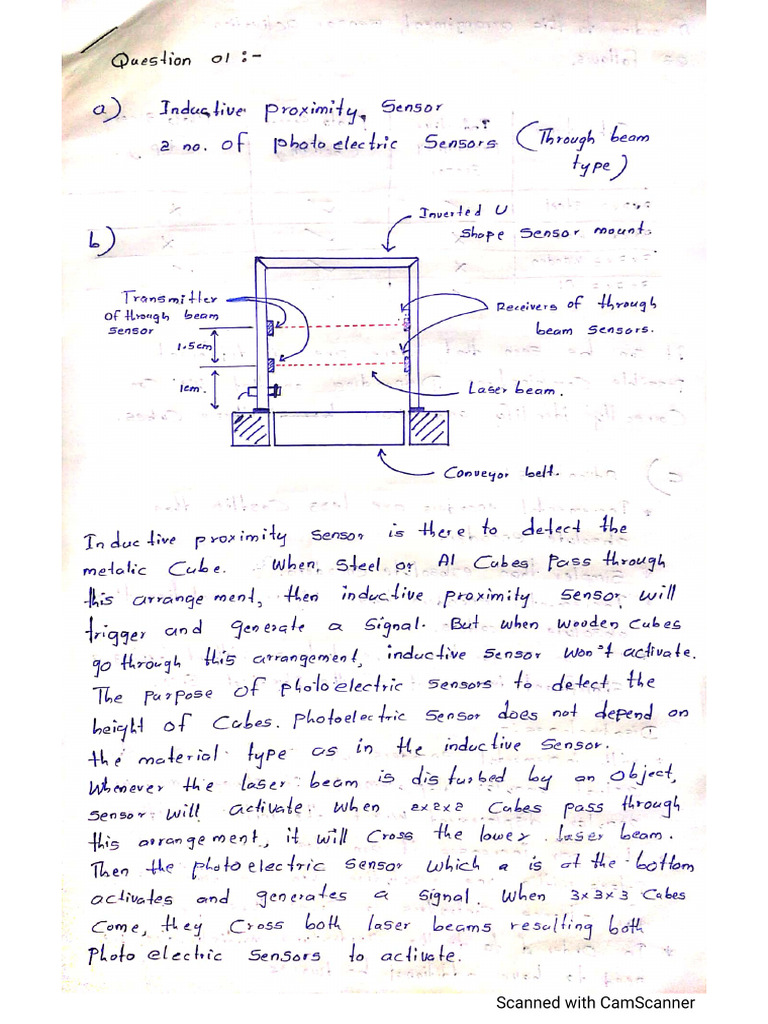 Question 01 :-
a) Inductive proximity Sensor
2 no. of photo electric Sensors (Through beam
type)
b)
Inverted U
Shape Sensor mount.
Transmitter
of through beam
sensor
Receivers of through
beam sensors.
1.5cm
1cm.
Laser beam.
Conveyor belt.
Inductive proximity sensor is there to detect the
metalic Cube. When, Steel or Al Cubes Pass through
this arrangement, then inductive proximity sensor will
trigger and generate a Signal. But when wooden cubes
go through this arrangement, inductive sensor won't activate.
The purpose of photoelectric sensors to detect the
height of Cubes. Photoelectric Sensor does not depend on
the material type as in the inductive sensor.
Whenever the laser beam is disturbed by an object,
sensor will activate. When 2x2x2 Cubes pass through
this arrangement, it will Cross the lower laser beam.
Then the photoelectric sensor which a is at the bottom
activates and generates a signal. When 3x3x3 Cubes
Come, they Cross both laser beams resulting both
Photo electric sensors to activate.
Scanned with CamScanner